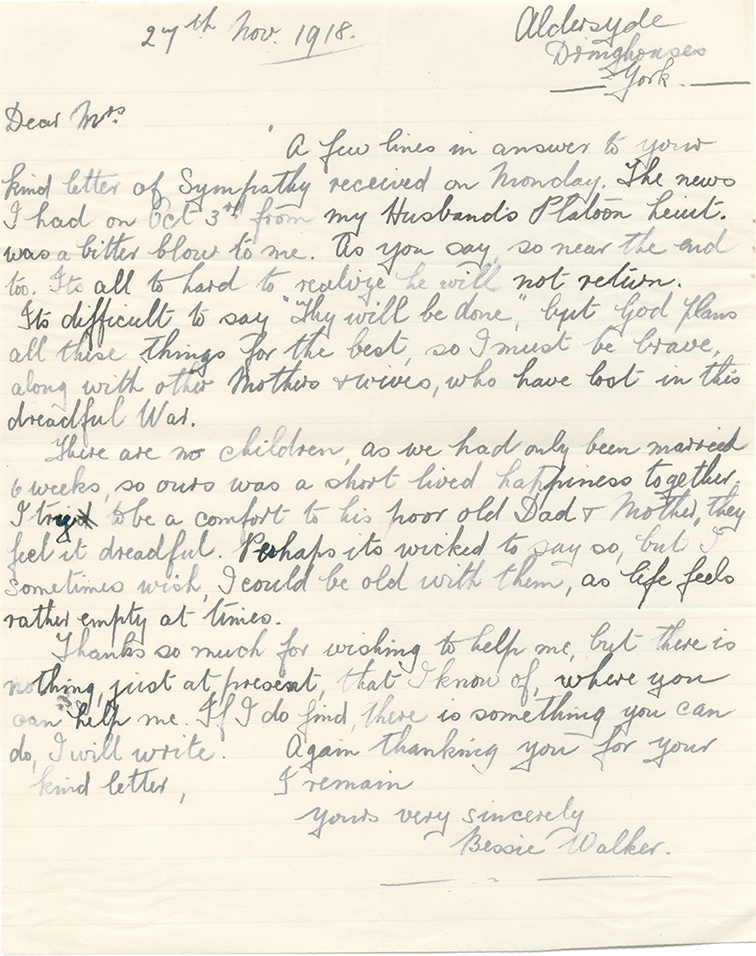 27th Nov. 1918.
Aldersyde
Dringhouses
York.
Dear Mrs
A few lines in answer to your
kind letter of Sympathy received on Monday. The news
I had on Oct 3rd from my Husband's Platoon Leiut.
was a bitter blow to me. As you say, so near the end
too. Its all to hard to realize he will not return.
Its difficult to say "Thy will be done", but God plans
all these things for the best, so I must be brave,
along with other Mothers & wives, who have lost in this
dreadful War.
There are no children, as we had only been married
6 weeks, so ours was a short lived happiness together.
I try to be a comfort to his poor old Dad & Mother, they
feel it dreadful. Perhaps its wicked to say so, but I
sometimes wish, I could be old with them, as life feels
rather empty at times.
Thanks so much for wishing to help me, but there is
nothing, just at present, that I know of, where you
can help me. If I do find, there is something you can
do, I will write. Again thanking you for your
kind letter, I remain
Yours very sincerely
Bessie Walker.